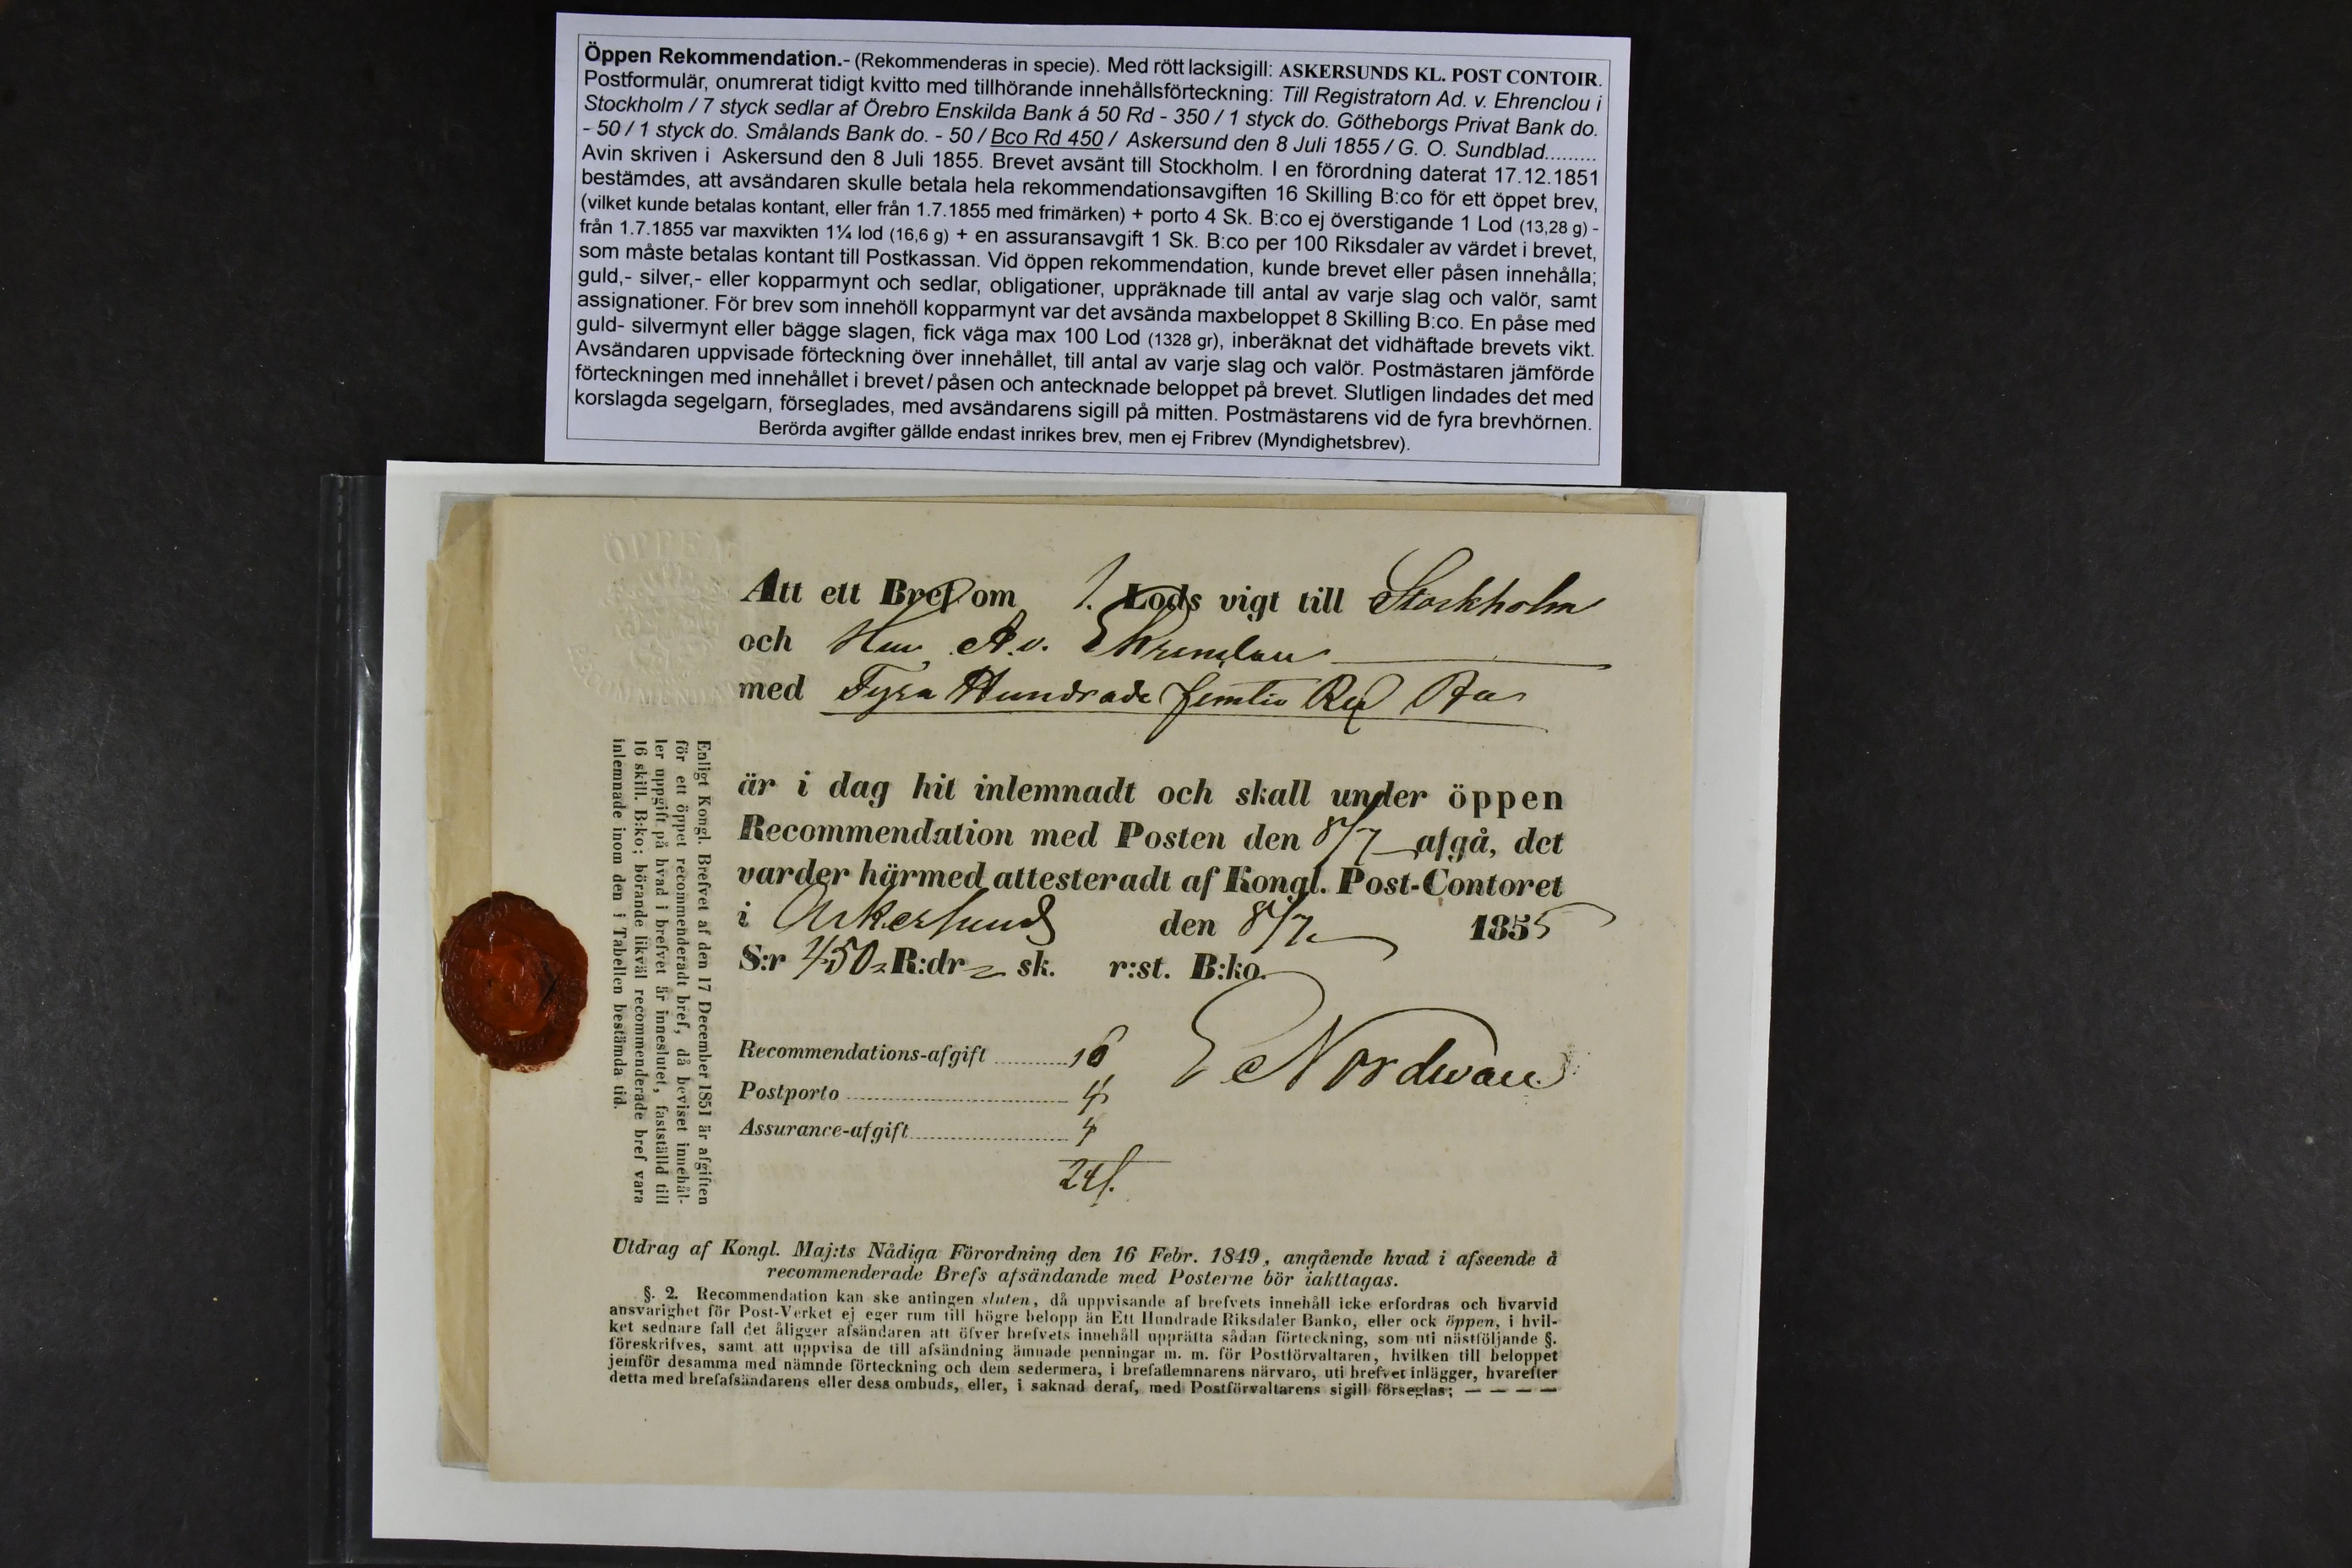 Öppen Rekommendation.- (Rekommenderas in specie). Med rött lacksigill: ASKERSUNDS KL. POST CONTOIR.
Postformulär, onumrerat tidigt kvitto med tillhörande innehållsförteckning: Till Registratorn Ad. v. Ehrenclou i
Stockholm / 7 styck sedlar af Örebro Enskilda Bank á 50 Rd - 350 / 1 styck do. Götheborgs Privat Bank do.
- 50 / 1 styck do. Smålands Bank do. - 50 / Bco Rd 450 / Askersund den 8 Juli 1855 / G. O. Sundblad.........
Avin skriven i Askersund den 8 Juli 1855. Brevet avsänt till Stockholm. I en förordning daterat 17.12.1851
bestämdes, att avsändaren skulle betala hela rekommendationsavgiften 16 Skilling B:co för ett öppet brev,
(vilket kunde betalas kontant, eller från 1.7.1855 med frimärken) + porto 4 Sk. B:co ej överstigande 1 Lod (13,28 g) -
från 1.7.1855 var maxvikten 1¼ lod (16,6 g) + en assuransavgift 1 Sk. B:co per 100 Riksdaler av värdet i brevet,
som måste betalas kontant till Postkassan. Vid öppen rekommendation, kunde brevet eller påsen innehålla;
guld,- silver,- eller kopparmynt och sedlar, obligationer, uppräknade till antal av varje slag och valör, samt
assignationer. För brev som innehöll kopparmynt var det avsända maxbeloppet 8 Skilling B:co. En påse med
guld- silvermynt eller bägge slagen, fick väga max 100 Lod (1328 gr), inberäknat det vidhäftade brevets vikt.
Avsändaren uppvisade förteckning över innehållet, till antal av varje slag och valör. Postmästaren jämförde
förteckningen med innehållet i brevet / påsen och antecknade beloppet på brevet. Slutligen lindades det med
korslagda segelgarn, förseglades, med avsändarens sigill på mitten. Postmästarens vid de fyra brevhörnen.
Berörda avgifter gällde endast inrikes brev, men ej Fribrev (Myndighetsbrev).
ÖPPEN
RECOMMENDA
Att ett Bref om 1. Lods vigt till Stockholm
och Herr A. v. Ehrenclou
med Fyra Hundrade femtio Rd
är i dag hit inlemnadt och skall under öppen
Recommendation med Posten den 8/7 afgå, det
varder härmed attesteradt af Kongl. Post-Contoret
i Askersund den 8/7 1855
S:r 450 R:dr sk. r:st. B:ko.
Recommendations-afgift 16
Postporto 4
Assurance-afgift 4
24
Enligt Kongl. Brefvet af den 17 December 1851 är afgiften
för ett öppet recommenderadt bref, då beviset innehål-
ler uppgift på hvad i brefvet är inneslutet, fastställd till
16 skill. B:ko; börande likväl recommenderade bref vara
inlemnade inom den i Tabellen bestämda tid.
Utdrag af Kongl. Maj:ts Nådiga Förordning den 16 Febr. 1849, angående hvad i afseende å
recommenderade Brefs afsändande med Posterne bör iakttagas.
§. 2. Recommendation kan ske antingen sluten, då uppvisande af brefvets innehåll icke erfordras och hvarvid
ansvarighet för Post-Verket ej eger rum till högre belopp än Ett Hundrade Riksdaler Banko, eller ock öppen, i hvil-
ket sednare fall det åligger afsändaren att öfver brefvets innehåll upprätta sådan förteckning, som uti nästföljande §.
föreskrifves, samt att uppvisa de till afsändning ämnade penningar m. m. för Postförvaltaren, hvilken till beloppet
jemför desamma med nämnde förteckning och dem sedermera, i brefaflemnarens närvaro, uti brefvet inlägger, hvarefter
detta med brefafsändarens eller dess ombuds, eller, i saknad deraf, med Postförvaltarens sigill förseglas; — — — —